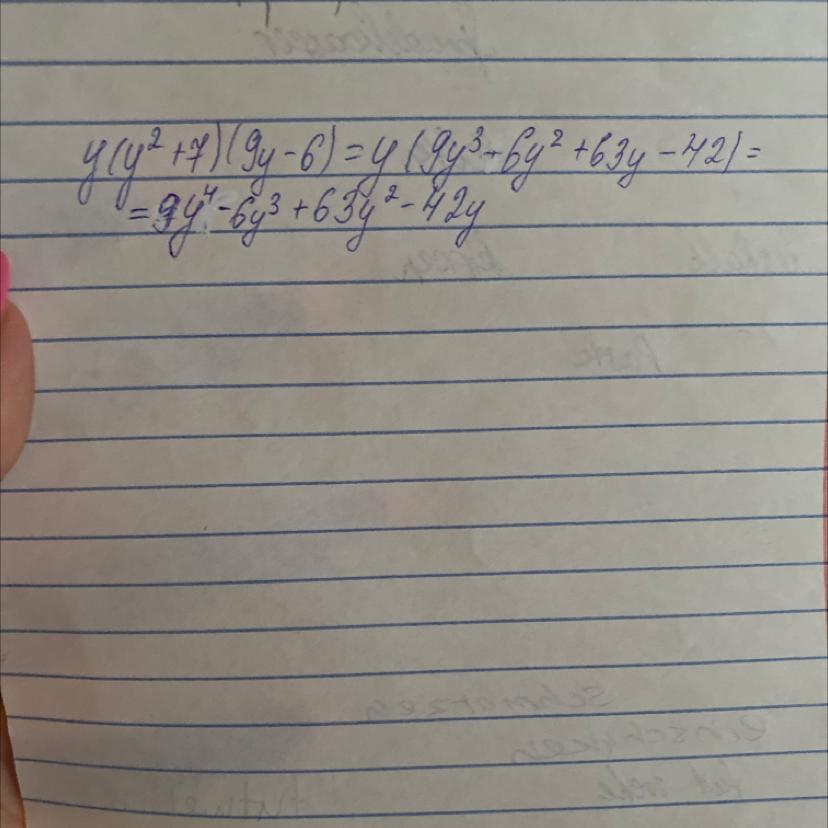 y(y²+7)(9y-6)=y(9y³-6y²+63y-42)=
=9y⁴-6y³+63y²-42y